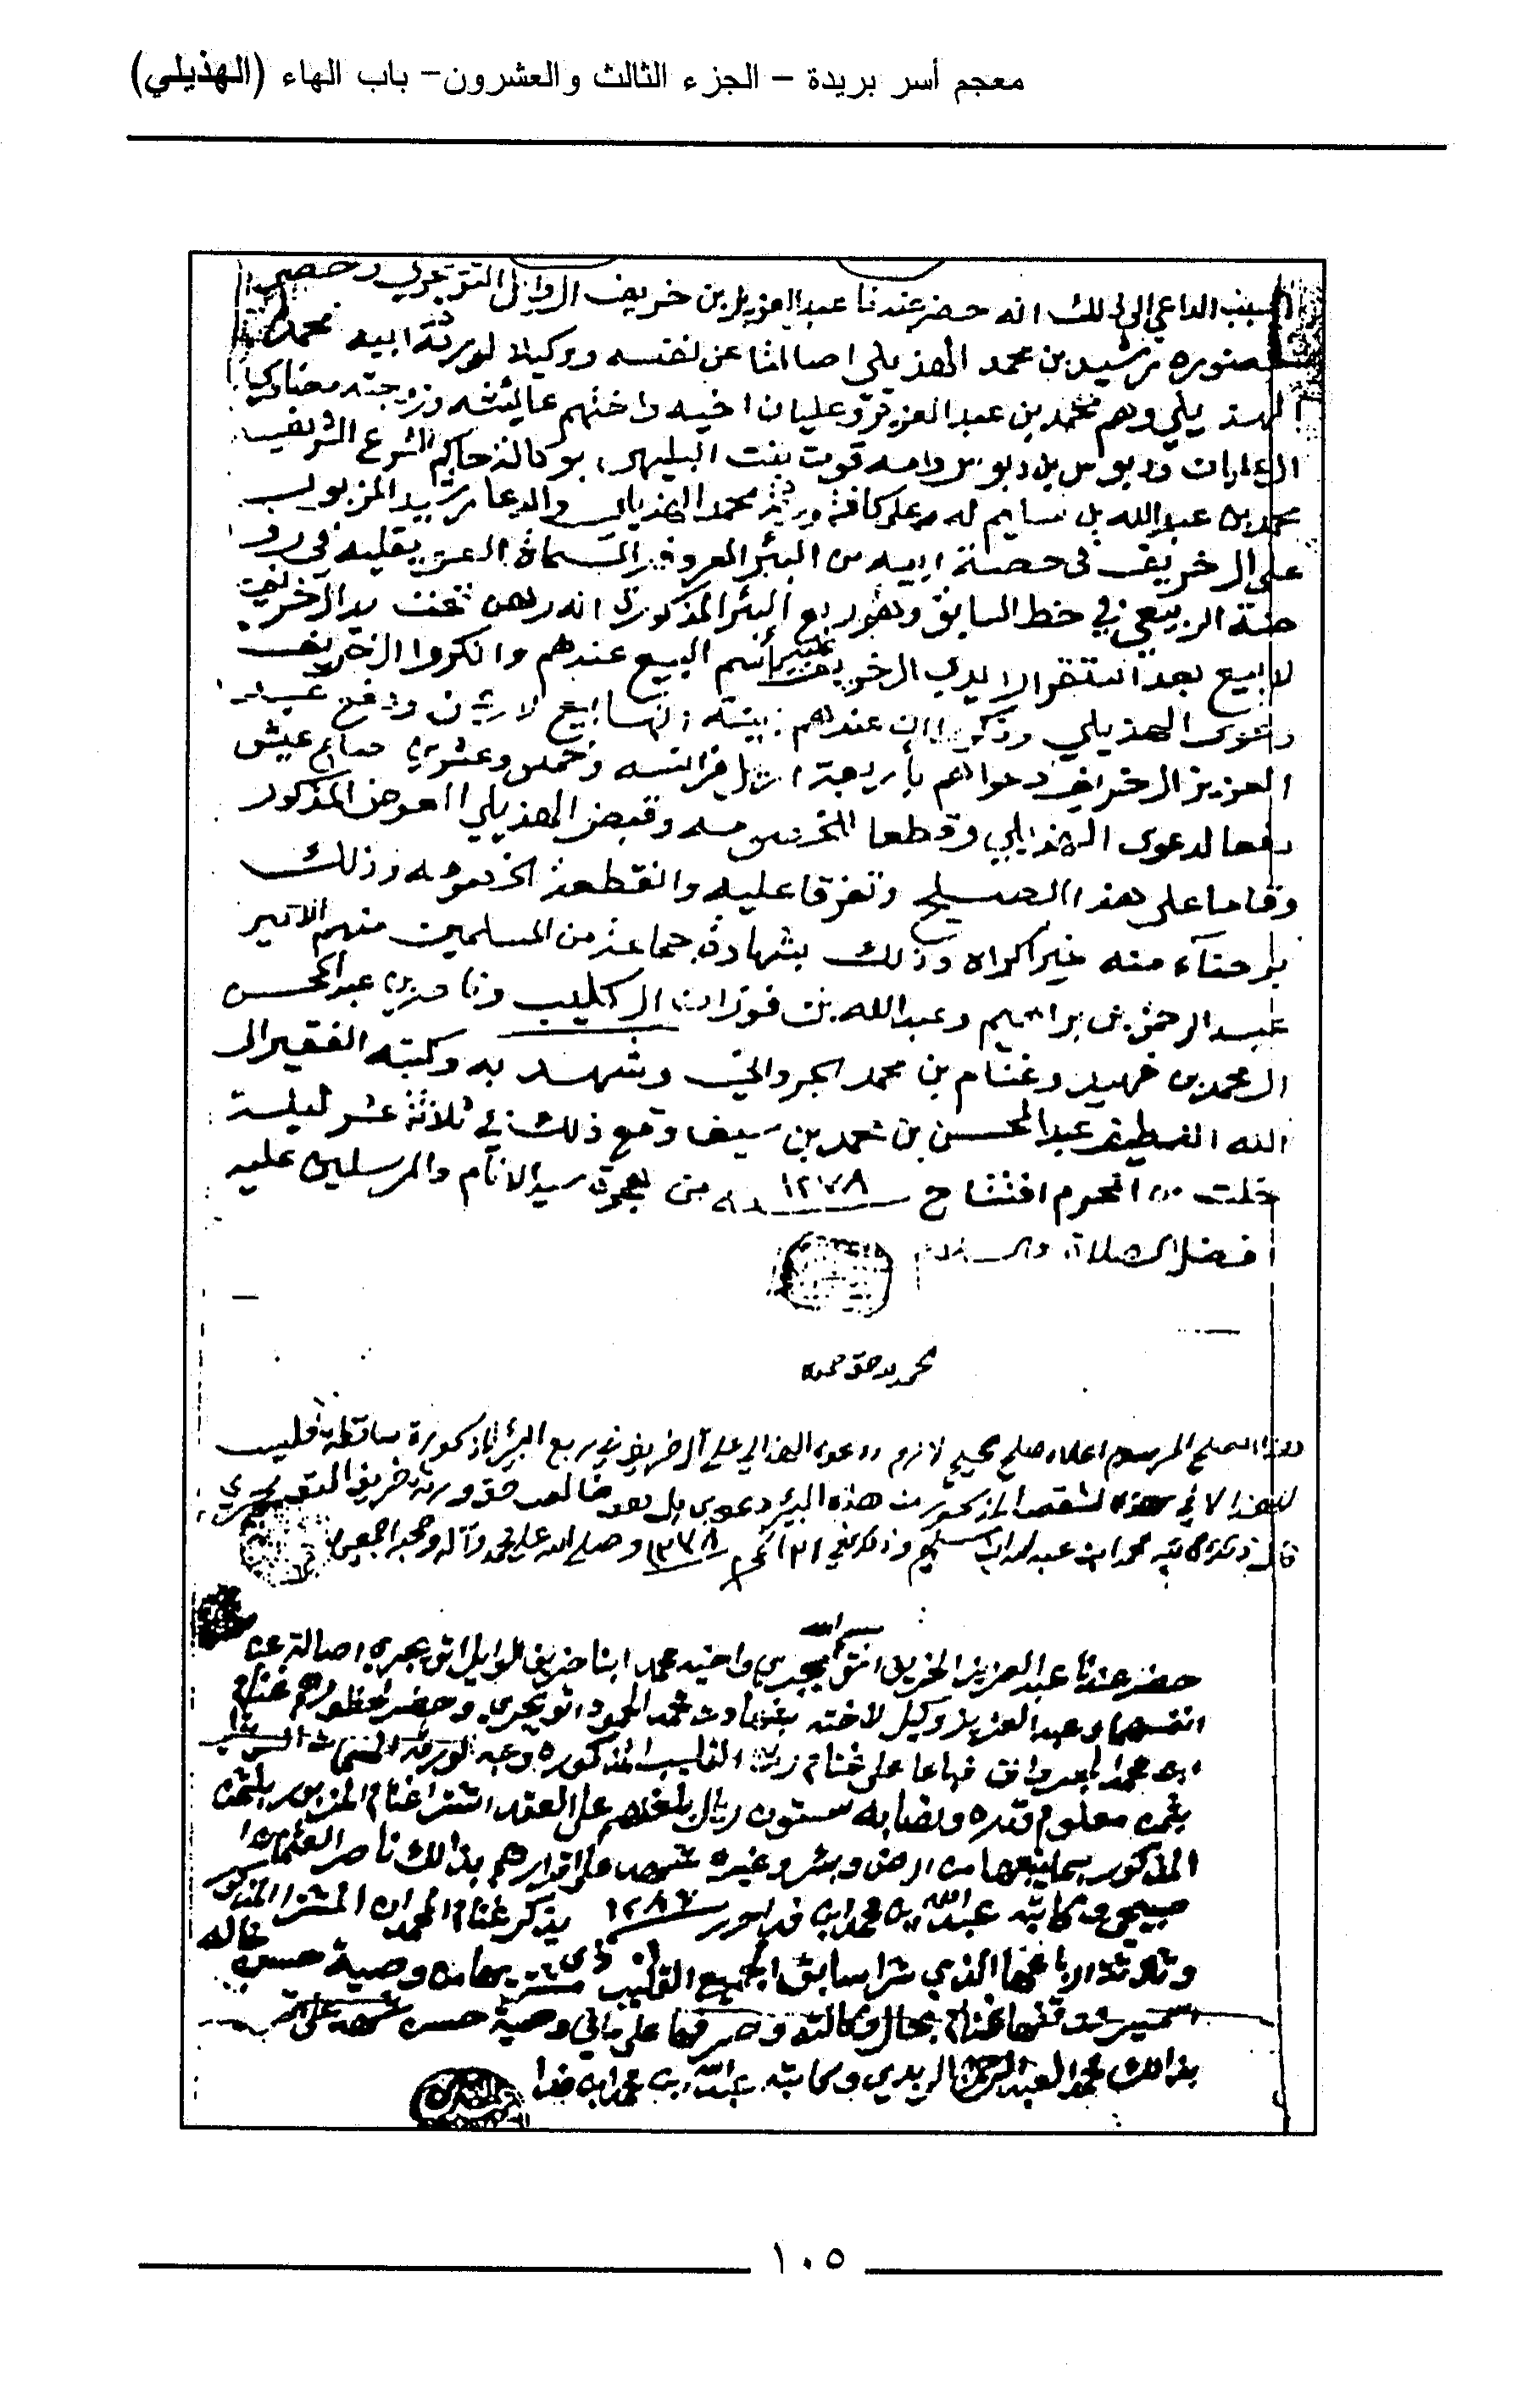 معجم أسر بريدة – الجزء الثالث والعشرون– باب الهاء (الهذيلي)
السبب الداعي إلى ذلك انه حضر عندنا عبدالعزيز بن خريف الوايلي التويجري وحضر
لحضوره رشيد بن محمد الهذيلي اصالتا عن نفسه ووكيلا لورثة ابيه محمد
الهذيلي وهم محمد بن عبدالعزيز وعليان اخيه واختهم عائشه وزوجته
ودبوس بن دبوس وامه قوت بنت البليهي بوكالة حاكم الشرع الشريف
محمد بن عبدالله بن سليم له وعلى كافة ورثة محمد الهذيلي وادعا رشيد المزبور
على الخريف في حصة ابيه من البئر المعروفه المسماة
الربيعي في خط السابق وهو ربع البئر المذكورة انه رهن تحت يد الخريف
لا بيع بعد استقر الايدي الخريف البيع عندهم وانكروا الخريف
دعوى الهذيلي وذكروا ان عندهم بينة انها بيع لا رهن ودفع عبد
العزيز الخريف دعواهم بأربعة اريل فرانسه وخمس وعشرين صاع عيش
دفعا لدعوى الهذيلي وقطعا للخصومه وقبض الهذيلي العوض المذكور
وقاما على هذا الصلح وتفرقا عليه وانقطعة الخصومه وذلك
برضاء منه غير اكراه وذلك بشهادة جماعة من المسلمين منهم الامير
عبدالرحمن بن براهيم وعبدالله بن فوزان الكليب وناصر بن عبدالمحسن
ال محمد بن فهيد وغنام بن محمد الجرواني وشهد به وكتبه الفقير الى
الله اللطيف عبدالمحسن بن محمد بن سيف وقع ذلك في ثلاثة عشر ليلة
خلت من المحرم افتتاح ١٢٧٨ من هجرة سيد الانام والمرسلين عليه
افضل الصلاة والسلام
الحمد لله حق حمده
هذا الصلح المرسوم اعلاه صلح صحيح لازم ودعوى الهذالي على آل خريف في ربع البئر المذكورة ساقطة فليس
للهذالي في هذه الشقص المذكور من هذه البئر دعوى بل هو خالص حق ورثة خريف التويجري
قال ذلك كاتبه محمد ابن عبدالله ابن سليم وذلك في ١٢٧٨ وصلى الله على محمد وآله وصحبه اجمعين
بسم الله
حضر عندنا عبدالعزيز الخريف التويجري واخيه محمد ابنا خريف الوايلي التويجري اصالة عن
انفسهما وعبدالعزيز وكيل لاخته بشهادت محمد الحمود اتويجري وحضر لحظورهم غنام
ابن محمد الجرواني فباعا على غنام القليب المذكوره
بثمن معلوم قدره ونصابه ستون ريال بلغتهم على العقد اشترا غنام المزبور بالثمن
المذكور بما يتبعها من ارض وبئر وغيره شهد على اقرارهم بذالك ناصر العثمان
صبيحي وكاتبه عبدالله بن محمد ابن فدا حرر ١٢٨٦ يذكر غنام المحمد ان المشترا المذكور
وثلاثة الارباع الذي شرا سابق الجميع القليب مشتريها من وصية حسن
وقفها غنام بحال وكالته وصرفها على ما في وصية حسن شهد على
بذالك محمد العبدالرحمن الربدي وكاتبه عبدالله بن محمد ابن فدا
١٠٥